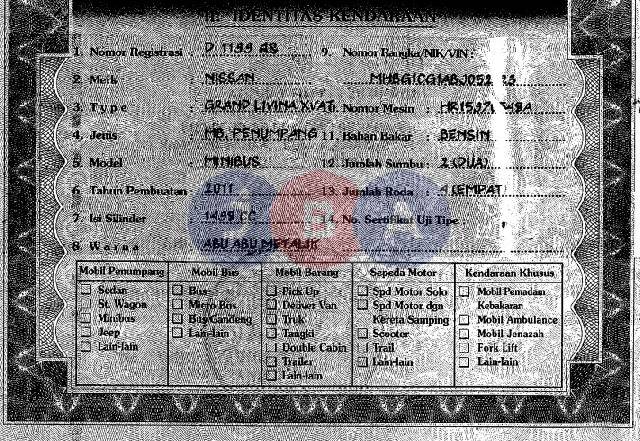 II. IDENTITAS KENDARAAN
1. Nomor Registrasi :
2. Merk : NISSAN
3. Type : GRAND LIVINA XV AT
4. Jenis : MB. PENUMPANG
5. Model : MINIBUS
6. Tahun Pembuatan : 2011
7. Isi Silinder : 1498 CC
8. Warna : ABU ABU METALIK
9. Nomor Rangka/NIK/VIN :
Nomor Mesin :
11. Bahan Bakar : BENSIN
12. Jumlah Sumbu : 2 (DUA)
13. Jumlah Roda : 4 (EMPAT)
14. No. Sertifikat Uji Tipe :
JBA
Mobil Penumpang
Sedan
St. Wagon
Minibus
Jeep
Lain-lain
Mobil Bus
Bus
Micro Bus
Bus Gandeng
Lain-lain
Mobil Barang
Pick Up
Delever Van
Truk
Tangki
Double Cabin
Trailer
Lain-lain
Sepeda Motor
Spd Motor Solo
Spd Motor dgn
Kereta Samping
Scooter
Trail
Lain-lain
Kendaraan Khusus
Mobil Pemadam
Kebakaran
Mobil Ambulance
Mobil Jenazah
Fork Lift
Lain-lain